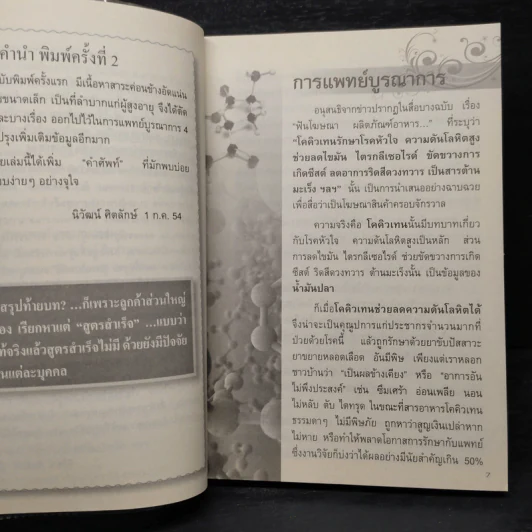 คำนำ พิมพ์ครั้งที่ 2
ฉบับพิมพ์ครั้งแรก มีเนื้อหาสาระค่อนข้างอัดแน่น
ขนาดเล็ก เป็นที่ลำบากแก่ผู้สูงอายุ จึงได้ตัด
ละบางเรื่อง ออกไปไว้ในการแพทย์บูรณาการ 4
ปรุงเพิ่มเติมข้อมูลอีกมาก
เล่มนี้ได้เพิ่ม "คำศัพท์" ที่มักพบบ่อย
บบง่ายๆ อย่างจุใจ
นิวัฒน์ ศิตลักษ์ 1 ก.ค. 54
สรุปท้ายบท? ...ก็เพราะลูกค้าส่วนใหญ่
อง เรียกหาแต่ "สูตรสำเร็จ" ...แบบว่า
ท้จริงแล้วสูตรสำเร็จไม่มี ด้วยยังมีปัจจัย
นแต่ละบุคคล
การแพทย์บูรณาการ
อนุสนธิจากข่าวปรากฏในสื่อบางฉบับ เรื่อง
"ฟันโฆษณา ผลิตภัณฑ์อาหาร..." ที่ระบุว่า
"โคคิวเทนรักษาโรคหัวใจ ความดันโลหิตสูง
ช่วยลดไขมัน ไตรกลีเซอไรด์ ขัดขวางการ
เกิดซีสต์ ลดอาการริดสีดวงทวาร เป็นสารต้าน
มะเร็ง ฯลฯ" นั้น เป็นการนำเสนออย่างฉาบฉวย
เพื่อสื่อว่าเป็นโฆษณาสินค้าครอบจักรวาล
ความจริงคือ โคคิวเทนนั้นมีบทบาทเกี่ยว
กับโรคหัวใจ ความดันโลหิตสูงเป็นหลัก ส่วน
การลดไขมัน ไตรกลีเซอไรด์ ช่วยขัดขวางการเกิด
ซีสต์ ริดสีดวงทวาร ต้านมะเร็งนั้น เป็นข้อมูลของ
น้ำมันปลา
ก็เมื่อโคคิวเทนช่วยลดความดันโลหิตได้
จึงน่าจะเป็นคุณูปการแก่ประชากรจำนวนมากที่
ป่วยด้วยโรคนี้ แล้วถูกรักษาด้วยยาขับปัสสาวะ
ยาขยายหลอดเลือด อันมีพิษ เพียงแต่เราหลอก
ชาวบ้านว่า "เป็นผลข้างเคียง" หรือ "อาการอัน
ไม่พึงประสงค์" เช่น ซึมเศร้า อ่อนเพลีย นอน
ไม่หลับ ตับ ไตทรุด ในขณะที่สารอาหารโคคิวเทน
ธรรมดาๆ ไม่มีพิษภัย ถูกหาว่าสูญเงินเปล่าหาก
ไม่หาย หรือทำให้พลาดโอกาสการรักษากับแพทย์
ซึ่งงานวิจัยก็บ่งว่าได้ผลอย่างมีนัยสำคัญเกิน 50%
7